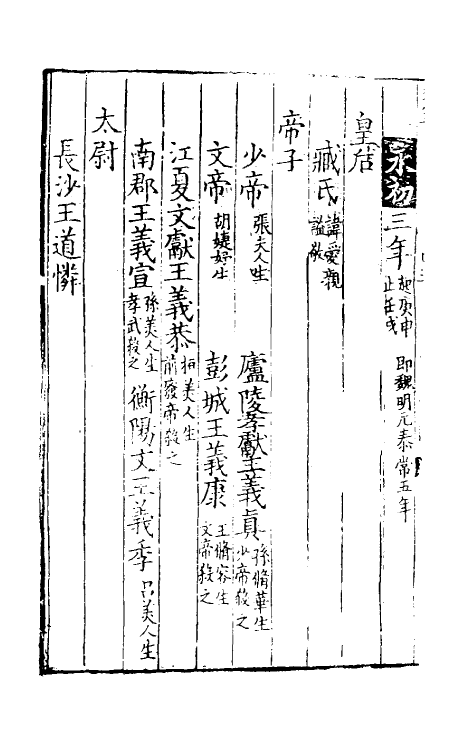 永初三年起庚申止壬戌 即魏明元泰常五年
皇后
臧氏諱愛親謚敬
帝子
少帝張夫人生 廬陵孝獻王義真孫脩華生少帝殺之
文帝胡婕妤生 彭城王義康王脩容生文帝殺之
江夏文獻王義恭袁美人生前廢帝殺之
南郡王義宣孫美人生孝武殺之 衡陽文王義季呂美人生
太尉
長沙王道憐